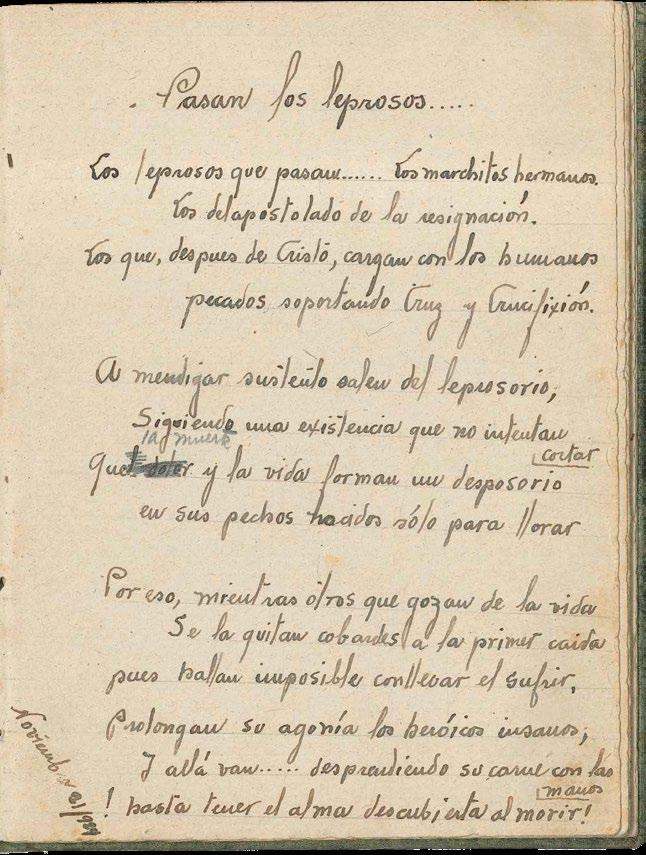 Pasan los leprosos.....
Los leprosos que pasan...... Los marchitos hermanos.
Los del apostolado de la resignación.
Los que, despues de Cristo, cargan con los humanos
pecados, soportando Cruz y Crucifixión.
A mendigar sustento salen del leprosorio;
Siguiendo una existencia que no intentan
cortar
la muerte
Que el dolor y la vida forman un desposorio
en sus pechos nacidos sólo para llorar
Por eso, mientras otros que gozan de la vida
Se la quitan cobardes a la primer caida
pues hallan imposible conllevar el sufrir,
Prolongan su agonía los heróicos insanos;
Y allá van..... desprendiendo su carne con las
manos
! hasta tener el alma descubierta al morir!
Noviembre